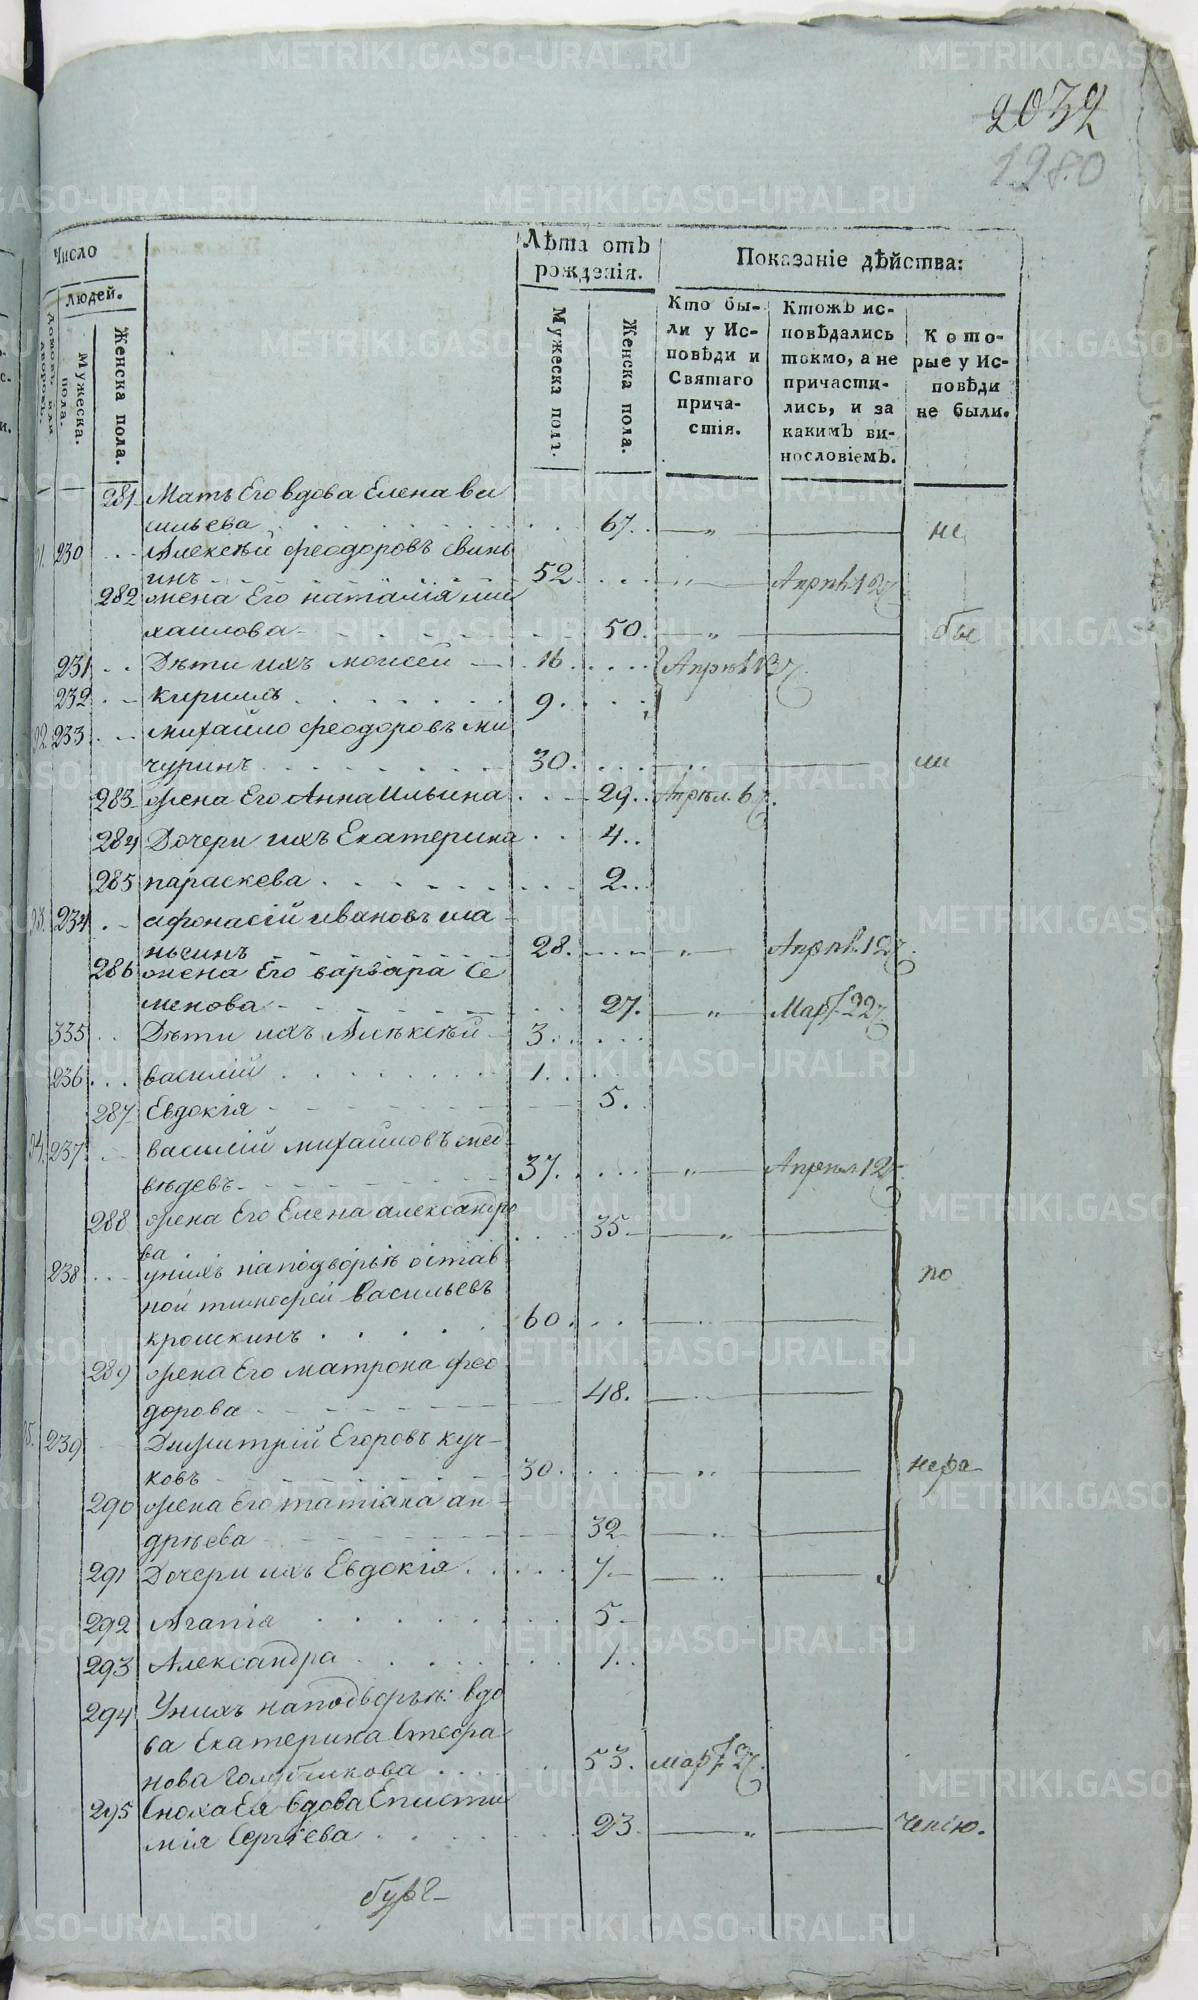 2032
1980
Число
людей.
Домовъ или дворовъ.
Мужеска пола.
Женска пола.
Лѣта отъ рожденія.
Мужеска пола.
Женска пола.
Показаніе дѣйства:
Кто были у Исповѣди и Святаго причастія.
Ктожъ исповѣдались токмо, а не причастились, и за какимъ винословіемъ.
Которые у Исповѣди не были.
281 Мать Его вдова Елена ва
сильева 67. — „ — не
230 Алексѣй Феодоровъ Свинь
инъ 52 „ — Апрѣл. 12
282 жена Его наталія ми
хаилова 50. — „ — бы
231 Дѣти ихъ моисей 16 Апрѣл 13
232 кирилъ 9.
233 михайло Феодоровъ ми
чуринъ 30. ли
283 жена Его Анна Ильина 29. Апрѣл. 6
284 Дочери ихъ Екатерина 4.
285 параскева 2.
234 афонасій ивановъ ша
ньсинъ 28. — „ — Апрѣл. 12
286 жена Его варвара Се
менова 27. — „ — Март. 22
335 Дѣти ихъ Алѣксѣй 3.
236 василій 1.
287 Евдокія 5.
237 василій михайловъ мед
вѣдевъ 37. — „ — Апрѣл. 12
288 жена Его Елена александро
ва 35 — „ —
238 унихъ на подворьѣ остав
ной тимофей васильевъ по
кромкинъ 60.
289 жена Его матрона фео
дорова 48.
239 Димитрій Егоровъ куч
ковъ 30. — „ — нера
290 жена Его татіана ан
дрѣева 32
291 Дочери ихъ Евдокія 7.
292 Агапія 5
293 Александра 1.
294 Унихъ на подворьѣ: вдо
ва Екатерина Стефа
нова Голубчикова 53. март. 2
295 Сноха Ея вдова Еписти
мія Сергіева 23. — „ — ченію.
METRIKI.GASO-URAL.RU